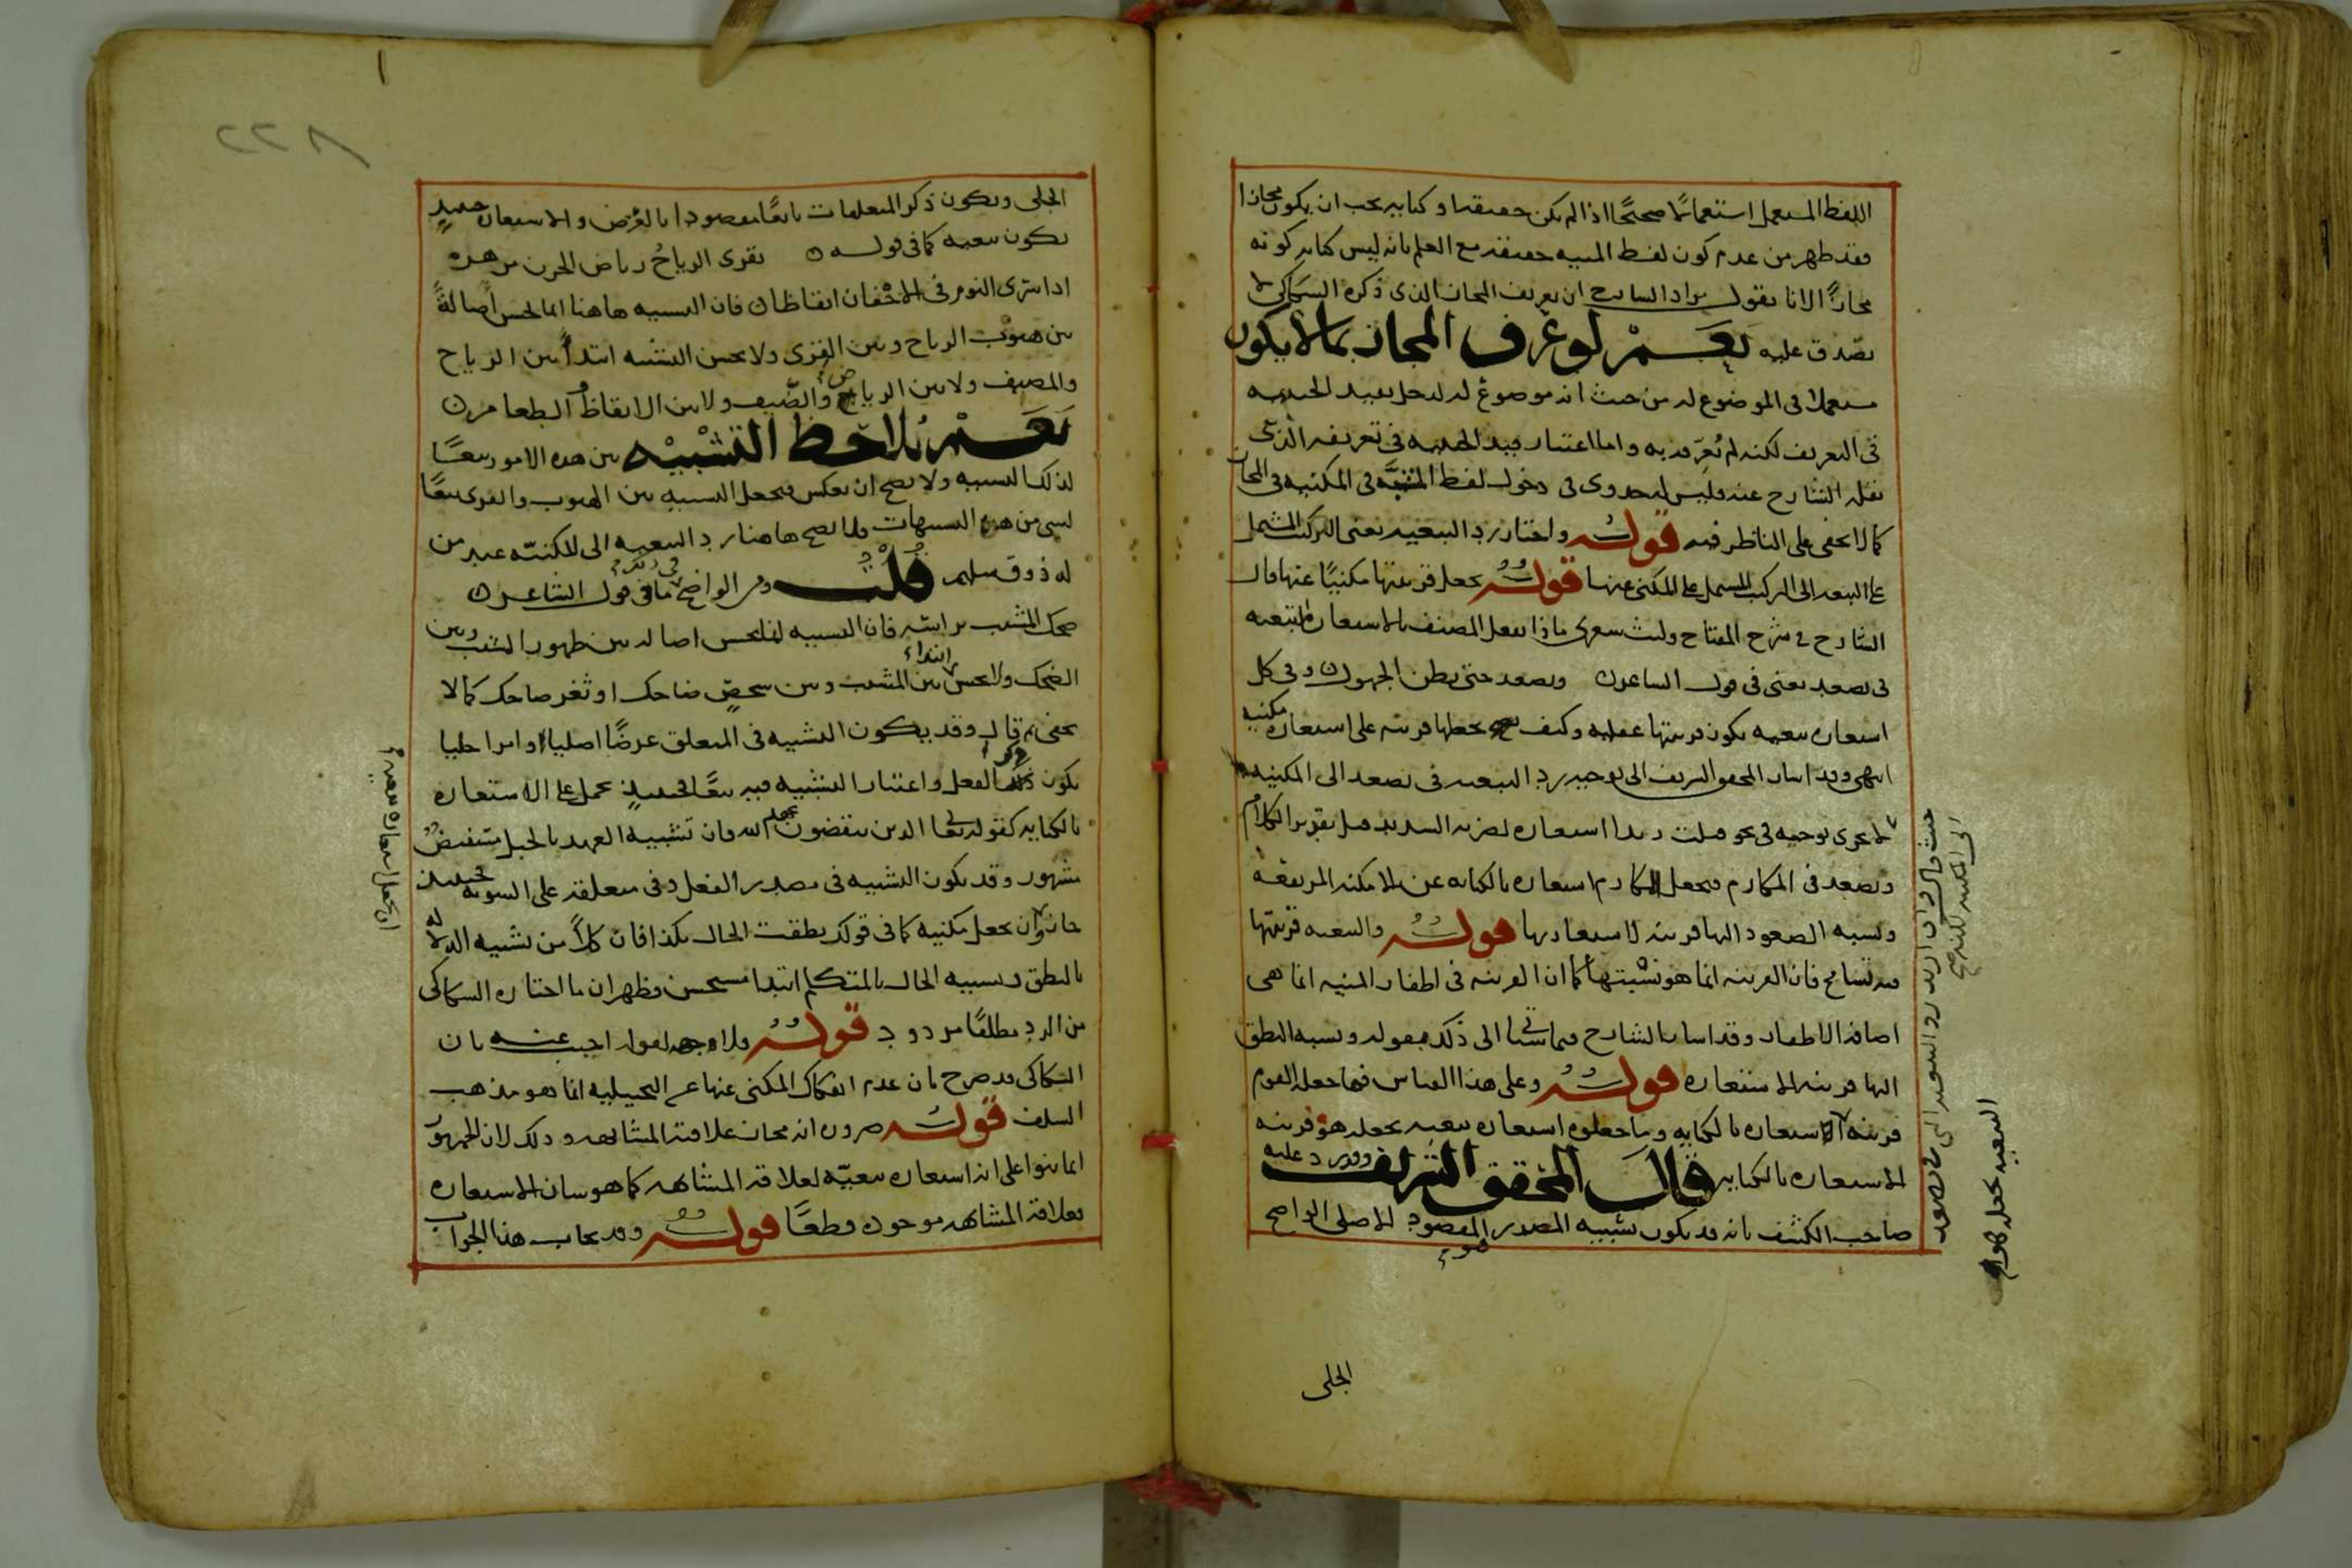 اللفظ المستعمل استعمالًا صحيحًا اذا لم يكن حقيقة او كناية يجب ان يكون مجازا
فقد ظهر من عدم كون لفظ المنية حقيقة مع العلم بانه ليس كناية كونه
مجازًا الا انا نقول مراد الشارح ان تعريف المجاز الذى ذكره السكاكى لا
يصدق عليه نعم لو عُرف المجاز بما لا يكون
مستعملا فى الموضوع له من حيث انه موضوع له لدخل بقيد الحيثية
فى التعريف لكنه لم يُعرّفه به واما اعتبار قيد الحيثية فى تعريفه الذى
نقله الشارح عنه فليس له جدوى فى دخول لفظ المشبَّه فى المكنية فى المجاز
كما لا يخفى على الناظر فيه قوله واختار رد التبعية يعنى التركيب المشتمل
على التبعية الى التركيب المشتمل على المكنى عنها قوله بجعل قرينتها مكنيًا عنها قال
الشارح فى شرح المفتاح وليت شعرى ماذا يفعل المصنف بالاستعارة التبعية
فى يصعد يعنى فى قول الشاعر ويصعد حتى يظن الجهول وفى كل
استعارة تبعية يكون قرينتها عقلية وكيف يجعلها قرينة على استعارة مكنية
انتهى وقد اشار المحقق الشريف الى توجيه رد التبعية فى تصعد الى المكنية
لا يجرى توجيهه فى نحو قتلت زيدا استعارة لضربه الشديد قيل تقدير الكلام
ويصعد فى المكارم فيجعل المكارم استعارة بالكناية عن الامكنة المرتفعة
ونسبة الصعود اليها قرينة لاستعارتها قوله والتبعية قرينتها
فيه تسامح فان القرينة انما هو نسبتها كما ان القرينة فى اظفار المنية انما هى
اضافة الاظفار وقد اشار الشارح فيما ياتى الى ذلك بقوله ونسبة النطق
اليها قرينة الاستعارة قوله وعلى هذا القياس فما جعله القوم
قرينة الاستعارة بالكناية وما جعلوه استعارة تبعية يجعله هو قرينة
الاستعارة بالكناية قال المحقق الشريف وقد رد عليه
صاحب الكشف بانه قد يكون تشبيه المصدر هو المقصود الاصلى الواضح
الجلى
الجلى ويكون ذكر المتعلقات تابعًا ومقصودا بالعرض والاستعارة حينئذٍ
تكون تبعية كما فى قوله تقرى الرياحُ رياض الحزن مزهرة
اذا سرى النوم فى الاجفان ايقاظا فان التشبيه هاهنا انما يحسن اصالةً
بين هبوب الرياح وبين القِرى ولا يحسن التشبيه ابتداءً بين الرياح
والمضيف ولا بين الرياض والضّيف ولا بين الايقاظ والطعام
نعم يُلاحظ التشبيْه بين هذه الامور تبعًا
لذلك التشبيه ولا يصح ان يعكس فيجعل التشبيه بين الهبوب والقرى تبعًا
لشى من هذه التشبيهات فلا يصح هاهنا رد التبعية الى المكنيّة عند من
له ذوق سليم قُلْتُ ومن الواضح فى ذلك ما فى قول الشاعر
ضحك المشيب براسه فان التشبيه انما يحسن اصالة بين ظهور الشيب وبين
الضحك ولا يحسن ابتداء بين المشيب وبين شخصٍ ضاحك او ثغر ضاحك كما لا
يخفى ثم قال وقد يكون التشبيه فى المتعلق غرضًا اصليا وامرا جليا
يكون ذكر الفعل واعتبار التشبيه فيه تبعًا فحينئذٍ يحمل على الاستعارة
بالكناية كقوله تعالى الذين ينقضون عهد الله فان تشبيه العهد بالحبل مستفيضٌ
مشهور وقد يكون التشبيه فى مصدر الفعل وفى متعلقه على السوية فحينئذ
جاز ان يجعل مكنية كما فى قولك نطقت الحال بكذا فان كلاً من تشبيه الدلالة
بالنطق وتشبيه الحال بالمتكلم ابتداءً مستحسن فظهر ان ما اختاره السكاكى
من الرد مطلقًا مردود قوله فلا وجه لقوله اجيب عنه بان
السكاكى قد صرح بان عدم انفكاك المكنى عنها عن التخييلية انما هو مذهب
السلف قوله ضرورة انه مجاز علاقته المشابهة وذلك لان الجمهور
انما بنوا على انه استعارة تبعيّة لعلاقة المشابهة كما هو شان الاستعارة
فعلاقة المشابهة موجودة قطعًا قوله وقد يجاب هذا الجواب